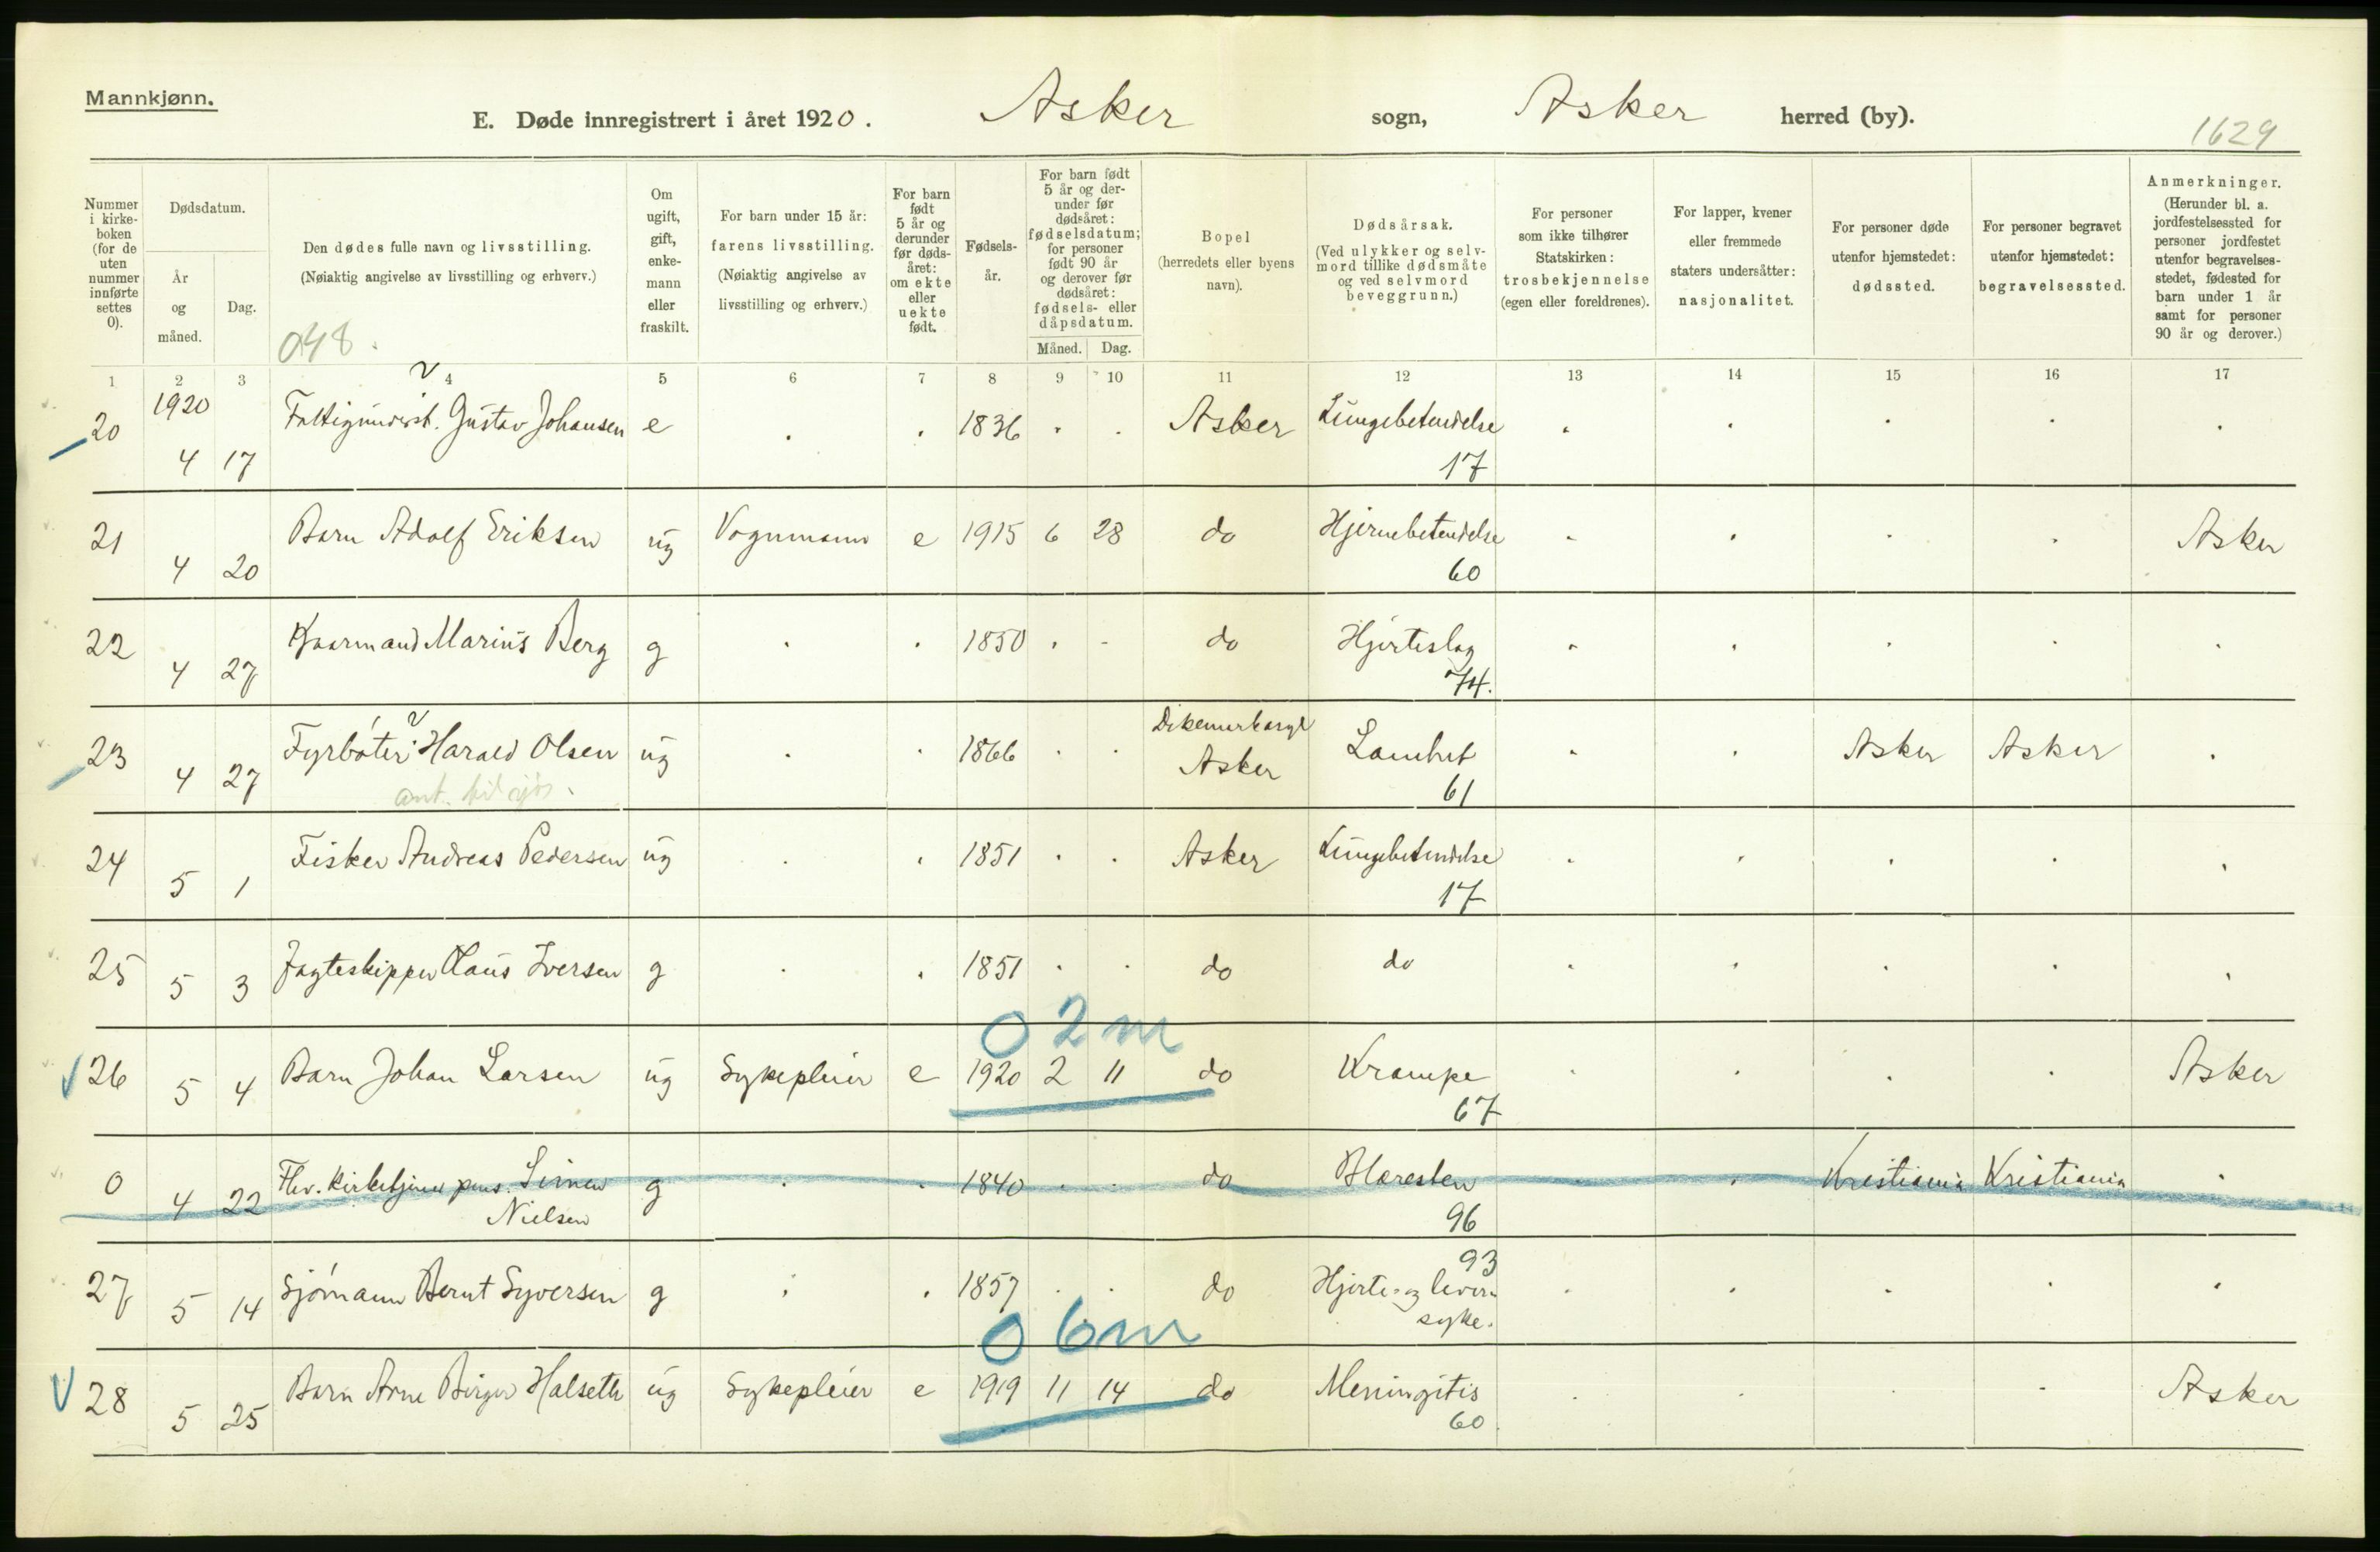 Mannkjønn.
E. Døde innregistrert i året 1920. Asker sogn, Asker herred (by).
1629
Nummer i kirke-boken (for de uten nummer innførte settes 0).
Dødsdatum.
År og måned.
Dag.
Den dødes fulle navn og livsstilling.
(Nøiaktig angivelse av livsstilling og erhverv.)
048.
Om ugift, gift, enke-mann eller fraskilt.
For barn under 15 år: farens livsstilling.
(Nøiaktig angivelse av livsstilling og erhverv.)
For barn født 5 år og derunder før døds-året: om ekte eller uekte født.
Fødsels-år.
For barn født 5 år og der-under før dødsåret: fødselsdatum; for personer født 90 år og derover før dødsåret: fødsels- eller dåpsdatum.
Måned. Dag.
Bopel
(herredets eller byens navn).
Dødsårsak.
(Ved ulykker og selv-mord tillike dødsmåte og ved selvmord beveggrunn.)
For personer som ikke tilhører Statskirken: trosbekjennelse (egen eller foreldrenes).
For lapper, kvener eller fremmede staters undersåtter: nasjonalitet.
For personer døde utenfor hjemstedet: dødssted.
For personer begravet utenfor hjemstedet: begravelsessted.
Anmerkninger.
(Herunder bl. a. jordfestelsessted for personer jordfestet utenfor begravelses-stedet, fødested for barn under 1 år samt for personer 90 år og derover.)
1 2 3 4 5 6 7 8 9 10 11 12 13 14 15 16 17
20 1920 4 17 Fattigunderst. Gustav Johansen e . . 1836 . . Asker Lungebetendelse . . . . .
17
21 4 20 Barn Adolf Eriksen ug Vognmann e 1915 6 28 do Hjernebetendelse . . . . Asker
60
22 4 27 Marius Berg g . . 1850 . - do Hjerteslag . . . . .
74.
23 4 27 Fyrbøter Harald Olsen ug . . 1866 . . Asker Lamhet . . Asker Asker .
61
24 5 1 Fisker Andreas Pedersen ug . . 1851 . . Asker Lungebetendelse . . . . .
17
25 5 3 Jagteskipper Claus Iversen g . . 1851 . . do do . . . . .
0 2 m
26 5 4 Barn Johan Larsen ug Sykepleier e 1920 2 11 do Krampe . . . . Asker
67
0 4 22 Fhv. Kirketjener pens. Simen g . . 1840 . . do Blæresten . . Kristiania Kristiania .
Nielsen 96
93
27 5 14 Sjømann Bernt Syversen g . . 1857 . . do Hjerte- og lever- . . . . .
syke.
0 6 m
28 5 25 Barn Arne Birger Halseth ug Sykepleier e 1919 11 14 do Meningitis . . . . Asker
60